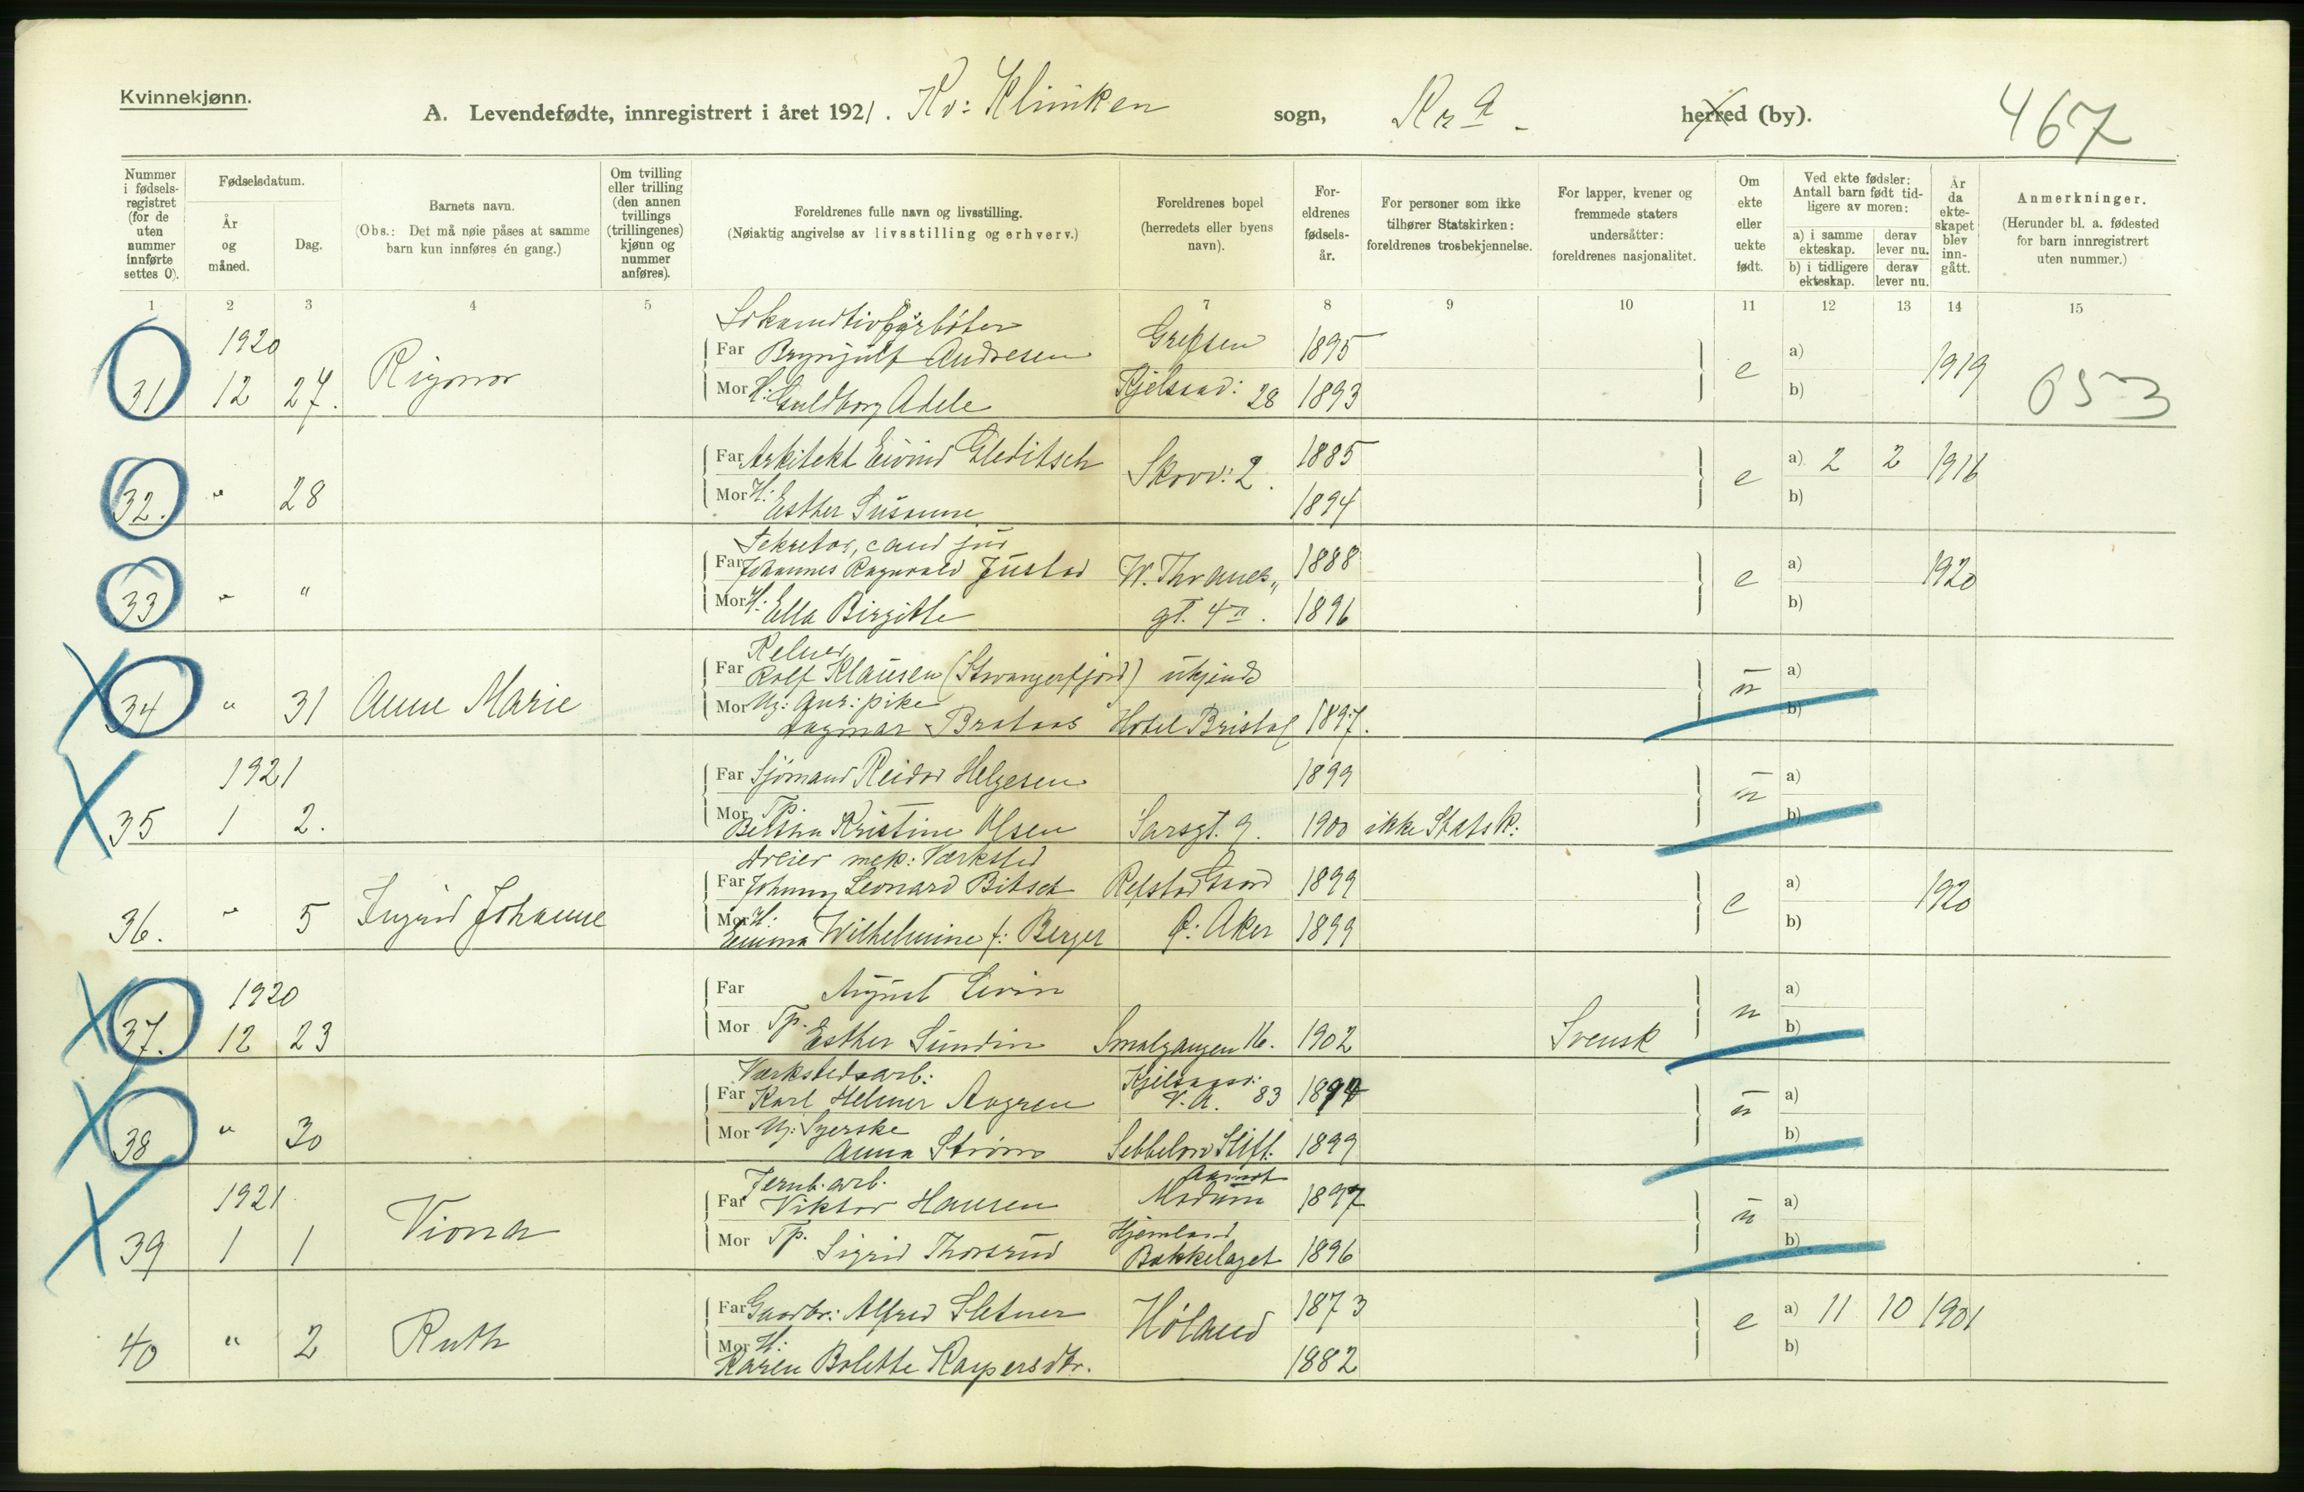 Kvinnekjønn.
A. Levendefødte, innregistrert i året 1921. Kv: Kliniken sogn, Kr a. herred (by). 467
Nummer i fødselsregistret (for de uten nummer innførte settes 0).
Fødselsdatum.
År og måned.
Dag.
Barnets navn.
(Obs.: Det må nøie påses at samme barn kun innføres én gang.)
Om tvilling eller trilling (den annen tvillings (trillingenes) kjønn og nummer anføres).
Foreldrenes fulle navn og livsstilling.
(Nøiaktig angivelse av livsstilling og erhverv.)
Foreldrenes bopel
(herredets eller byens navn).
Foreldrenes fødselsår.
For personer som ikke tilhører Statskirken: foreldrenes trosbekjennelse.
For lapper, kvener og fremmede staters undersåtter: foreldrenes nasjonalitet.
Om ekte eller uekte født.
Ved ekte fødsler: Antall barn født tidligere av moren:
a) i samme ekteskap. derav lever nu.
b) i tidligere ekteskap. derav lever nu.
År da ekteskapet blev inngått.
Anmerkninger.
(Herunder bl. a. fødested for barn innregistrert uten nummer.)
1 2 3 4 5 6 7 8 9 10 11 12 13 14 15
1920
Far Brynjulf Andresen Grefsen 1895
31 12 27. Rigmor e a) b) 1919 053
Mor H: Guldborg Adele Kjelsaad: 28 1893
Far Arkitekt Eivind Gleditsch Skovv: 2. 1885
32. " 28 e a) 2 2 b) 1916
Mor H: Esther Susanne 1894
Sekretær, cand jur
Far Johannes Ragnvald Justad W. Thranes 1888
33 " " e a) b) 1920
Mor H: Ella Birgitte gt. 4 II. 1896
Far Rolf Klausen (Stavangerfjord) ukjendt
34 " 31 Anne Marie u a) b)
Mor Ug: pike
Dagmar Brataas Hotel Bristol 1897.
1921
Far Sjømand Reidar Helgesen 1899
35 1 2. u a) b)
Mor Tp. Kristine Olsen Sarsgt. 9. 1900 ikke Statsk:
Dreier mek: Værksted
Far Johnny Leonard Bitsch Refstad 1899
36. " 5 Ingrid Johanne e a) b) 1920
Mor H: Emma Wilhelmine f: Berger Ø: Aker 1899
1920
Far August Levin
37. 12 23 u a) b)
Mor Tp. Esther Sundin Smalgangen 16. 1902 Svensk
Værkstedsarb:
Far Karl Helmer Kjelsaas: V. A. 83
38 " 30 u a) b)
Mor Ug: Syerske
Anna Strøm Sebbelows Stift. 1899
1921
Jernb. arb.
Far Viktor Hansen Modum 1897
39 1 1 Viona u a) b)
Mor Tp. Sigrid Thorsrud Bækkelaget 1896
Far Gaardbr: Alfred Sletner Høland 1873
40 " 2 Ruth e a) 11 10 b) 1901
Mor H: Karen Bolette Kaspersdtr. 1882